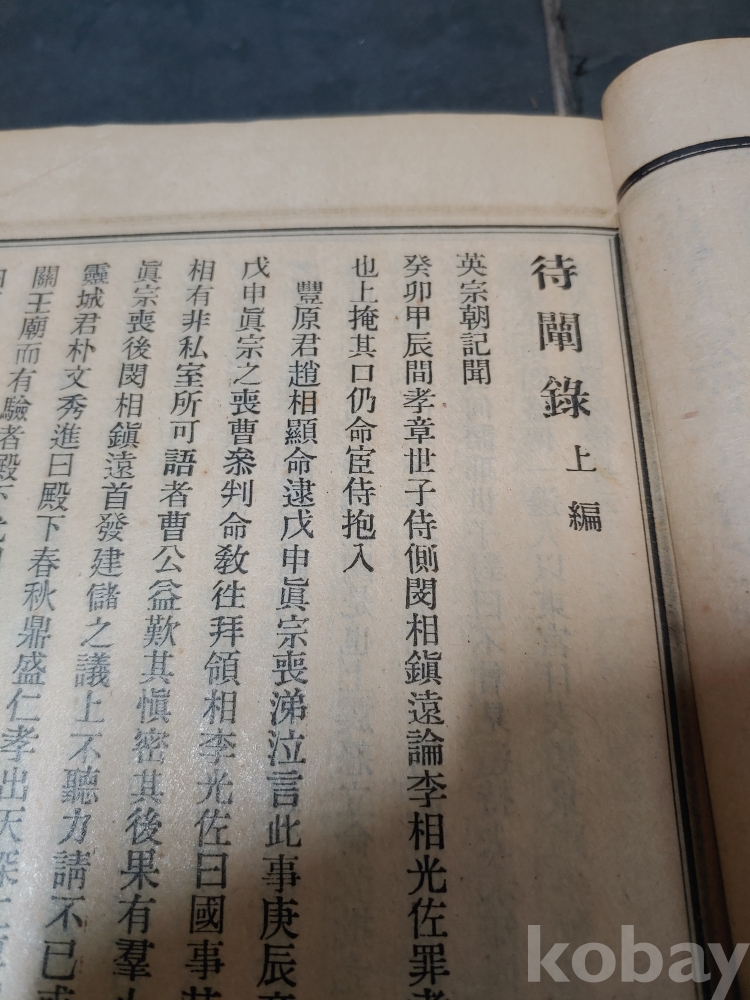 待闡錄 上編
英宗朝記聞
癸卯甲辰間孝章世子侍側閔相鎭遠論李相光佐罪
也上掩其口仍命宦侍抱入
豐原君趙相顯命逮戊申眞宗喪涕泣言此事庚辰
戊申眞宗之喪曹叅判命敎徃拜領相李光佐曰國事
相有非私室所可語者曹公益歎其愼密其後果有羣
眞宗喪後閔相鎭遠首發建儲之議上不聽力請不已
靈城君朴文秀進曰殿下春秋鼎盛仁孝出天
關王廟而有驗者殿下
kobay